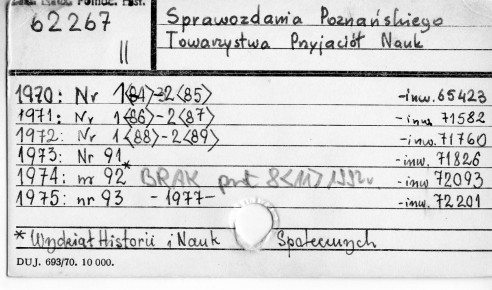 62267
II
Sprawozdania Poznańskiego
Towarzystwa Przyjaciół Nauk
1970: Nr 1<84>-2<85> -inw. 65423
1971: Nr 1<86>-2<87> -inw. 71582
1972: Nr 1<88>-2<89> -inw. 71760
1973: Nr 91 -inw. 71826
1974: nr 92* BRAK -inw. 72093
1975: nr 93 - 1977- -inw. 72201
* Wydział Historii i Nauk Społecznych
DUJ. 693/70. 10 000.